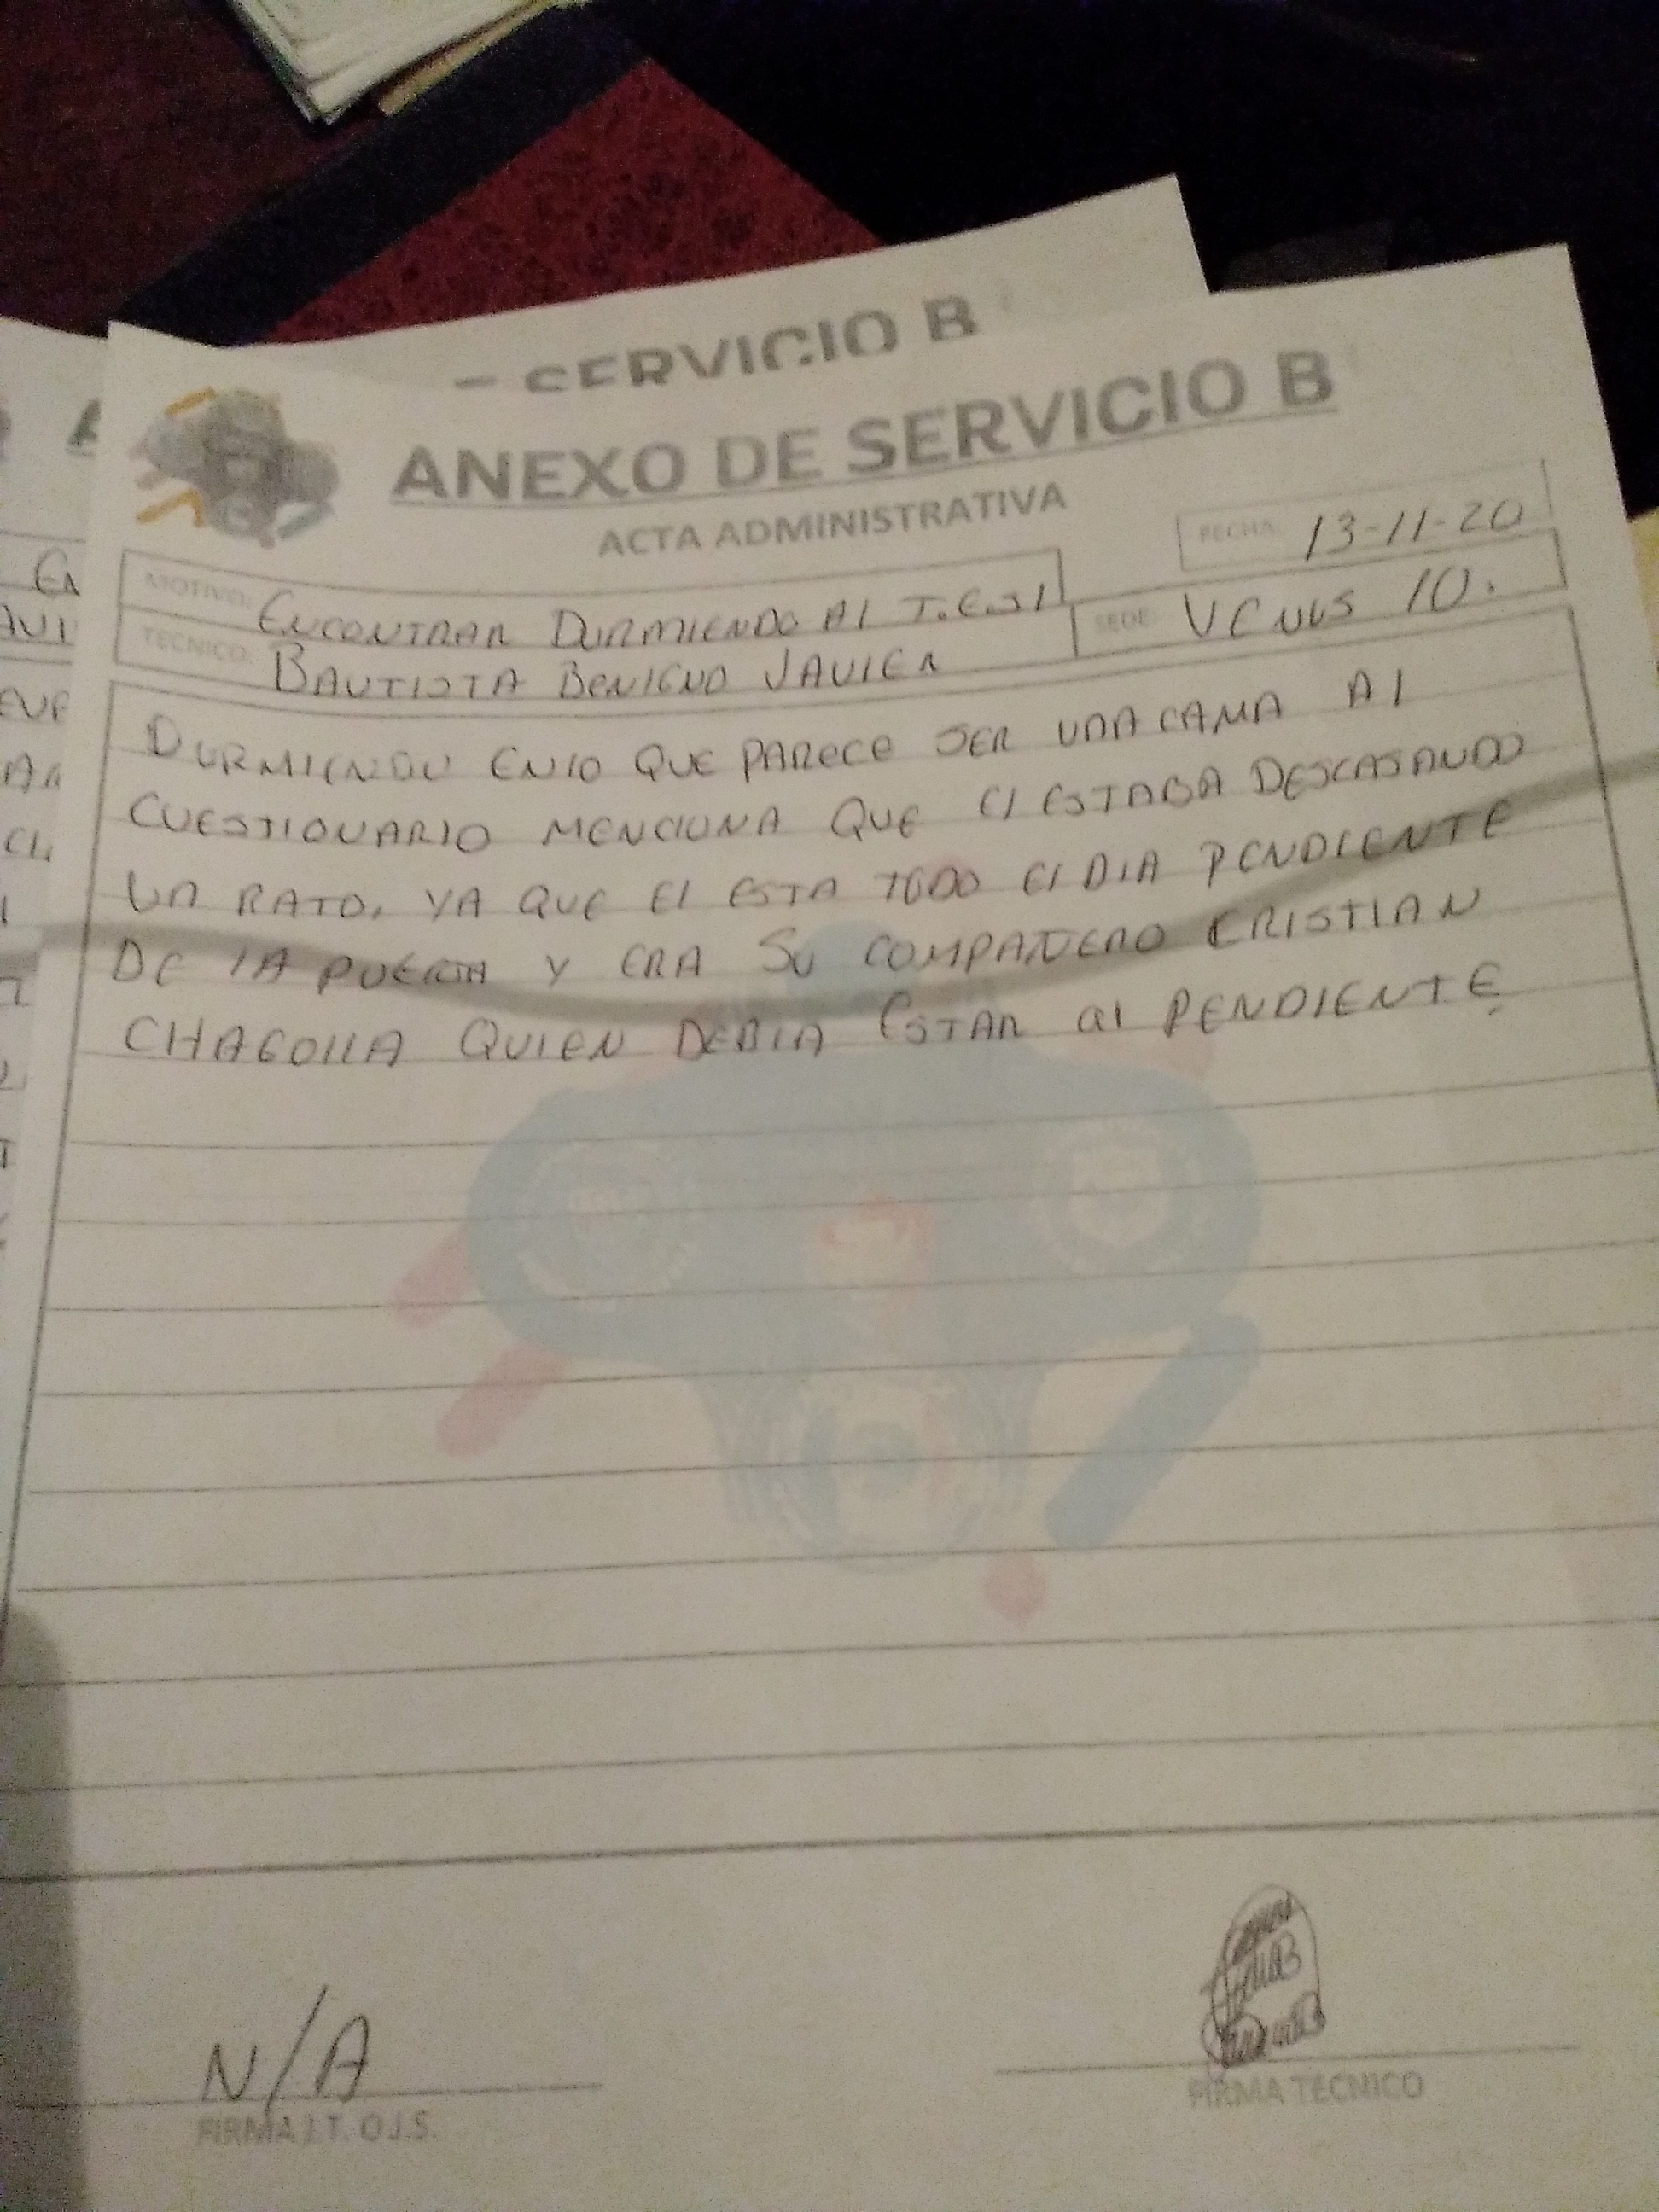 SERVICIO B
ANEXO DE SERVICIO B
ACTA ADMINISTRATIVA
FECHA: 13-11-20
MOTIVO: ENCONTRAR DURMIENDO Al T.E.SI
SEDE: VENUS 10.
TECNICO: BAUTISTA BENIGNO JAVIER
DURMIENDO EN lO QUE PARECE SER UNA CAMA Al
CUESTIONARIO MENCIONA QUE El ESTABA DESCASANDO
UN RATO, YA QUE El ESTA TODO El DIA PENDIENTE
DE lA PUERTA Y ERA SU COMPAÑERO CRISTIAN
CHAGOllA QUIEN DEBIA ESTAR al PENDIENTE
N/A
FIRMA J.T. O.J.S.
FIRMA TECNICO